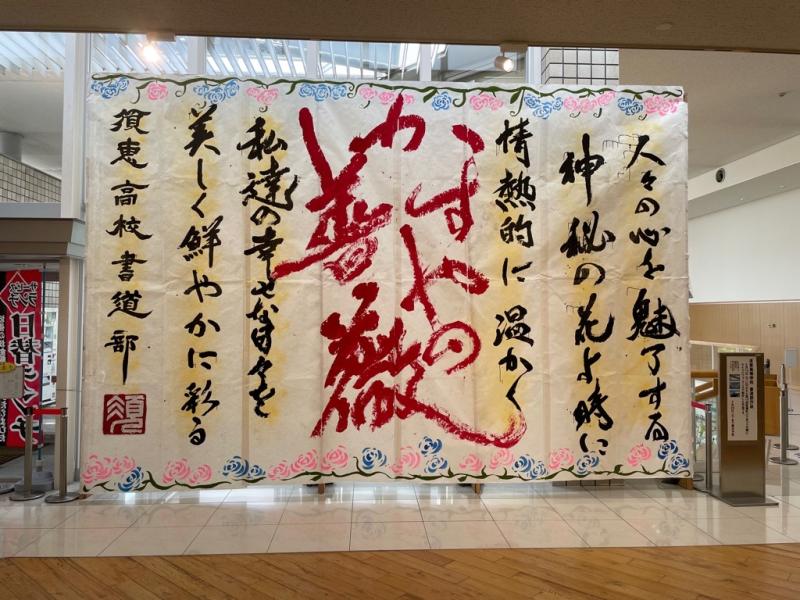 人々の心を魅了する
神秘の花よ時に
情熱的に温かく
かすやの
薔薇
私達の幸せな日々を
美しく鮮やかに彩る
須恵高校書道部
日替ランチ